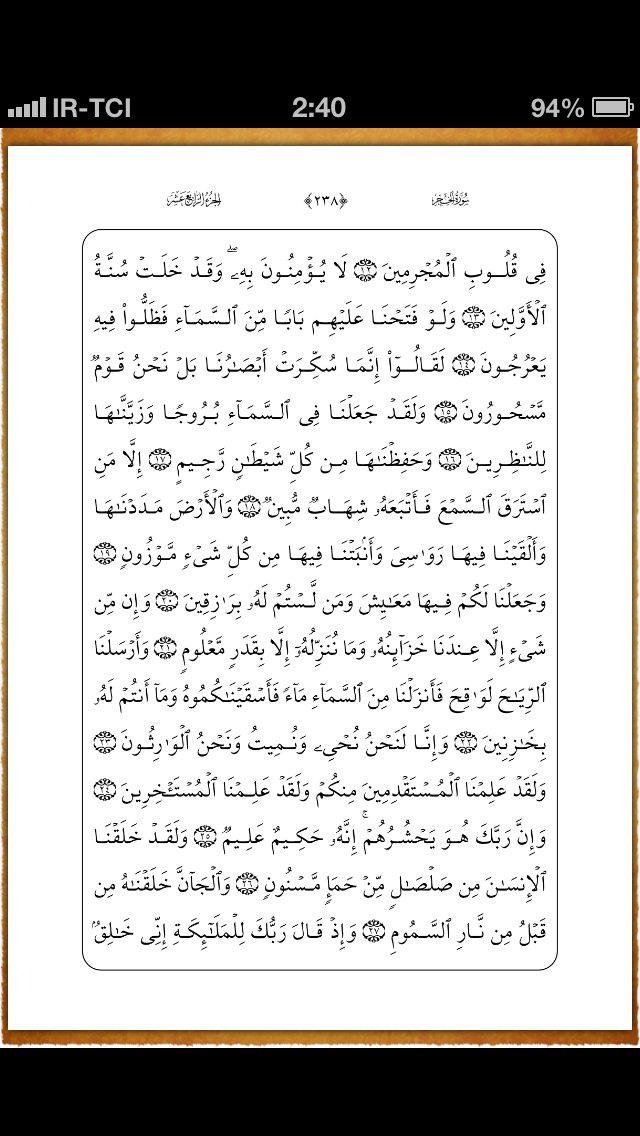 IR-TCI 2:40 94%
سُورَةُ الحِجْر ﴿٢٣٨﴾ الجُزءُ الرَّابِعَ عَشَرَ
فِى قُلُوبِ ٱلْمُجْرِمِينَ ١٢ لَا يُؤْمِنُونَ بِهِۦ ۖ وَقَدْ خَلَتْ سُنَّةُ
ٱلْأَوَّلِينَ ١٣ وَلَوْ فَتَحْنَا عَلَيْهِم بَابًا مِّنَ ٱلسَّمَآءِ فَظَلُّوا۟ فِيهِ
يَعْرُجُونَ ١٤ لَقَالُوٓا۟ إِنَّمَا سُكِّرَتْ أَبْصَٰرُنَا بَلْ نَحْنُ قَوْمٌ
مَّسْحُورُونَ ١٥ وَلَقَدْ جَعَلْنَا فِى ٱلسَّمَآءِ بُرُوجًا وَزَيَّنَّٰهَا
لِلنَّٰظِرِينَ ١٦ وَحَفِظْنَٰهَا مِن كُلِّ شَيْطَٰنٍ رَّجِيمٍ ١٧ إِلَّا مَنِ
ٱسْتَرَقَ ٱلسَّمْعَ فَأَتْبَعَهُۥ شِهَابٌ مُّبِينٌ ١٨ وَٱلْأَرْضَ مَدَدْنَٰهَا
وَأَلْقَيْنَا فِيهَا رَوَٰسِىَ وَأَنۢبَتْنَا فِيهَا مِن كُلِّ شَىْءٍ مَّوْزُونٍ ١٩
وَجَعَلْنَا لَكُمْ فِيهَا مَعَٰيِشَ وَمَن لَّسْتُمْ لَهُۥ بِرَٰزِقِينَ ٢٠ وَإِن مِّن
شَىْءٍ إِلَّا عِندَنَا خَزَآئِنُهُۥ وَمَا نُنَزِّلُهُۥٓ إِلَّا بِقَدَرٍ مَّعْلُومٍ ٢١ وَأَرْسَلْنَا
ٱلرِّيَٰحَ لَوَٰقِحَ فَأَنزَلْنَا مِنَ ٱلسَّمَآءِ مَآءً فَأَسْقَيْنَٰكُمُوهُ وَمَآ أَنتُمْ لَهُۥ
بِخَٰزِنِينَ ٢٢ وَإِنَّا لَنَحْنُ نُحْىِۦ وَنُمِيتُ وَنَحْنُ ٱلْوَٰرِثُونَ ٢٣
وَلَقَدْ عَلِمْنَا ٱلْمُسْتَقْدِمِينَ مِنكُمْ وَلَقَدْ عَلِمْنَا ٱلْمُسْتَـْٔخِرِينَ ٢٤
وَإِنَّ رَبَّكَ هُوَ يَحْشُرُهُمْ ۚ إِنَّهُۥ حَكِيمٌ عَلِيمٌ ٢٥ وَلَقَدْ خَلَقْنَا
ٱلْإِنسَٰنَ مِن صَلْصَٰلٍ مِّنْ حَمَإٍ مَّسْنُونٍ ٢٦ وَٱلْجَآنَّ خَلَقْنَٰهُ مِن
قَبْلُ مِن نَّارِ ٱلسَّمُومِ ٢٧ وَإِذْ قَالَ رَبُّكَ لِلْمَلَٰٓئِكَةِ إِنِّى خَٰلِقٌۢ